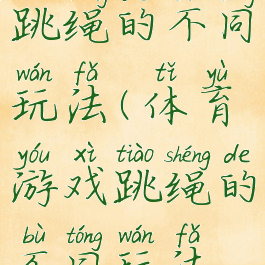 跳绳的不同
wán fǎ tǐ yù
玩法(体育
yóu xì tiào shéng de
游戏跳绳的
bù tóng wán fǎ
不同玩法